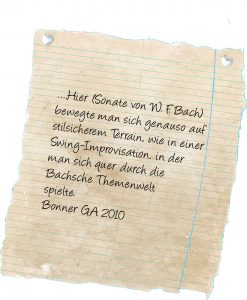 ...Hier (Sonate von W. F. Bach)
bewegte man sich genauso auf
stilsicherem Terrain, wie in einer
Swing-Improvisation, in der
man sich quer durch die
Bachsche Themenwelt
spielte.
Bonner GA 2010